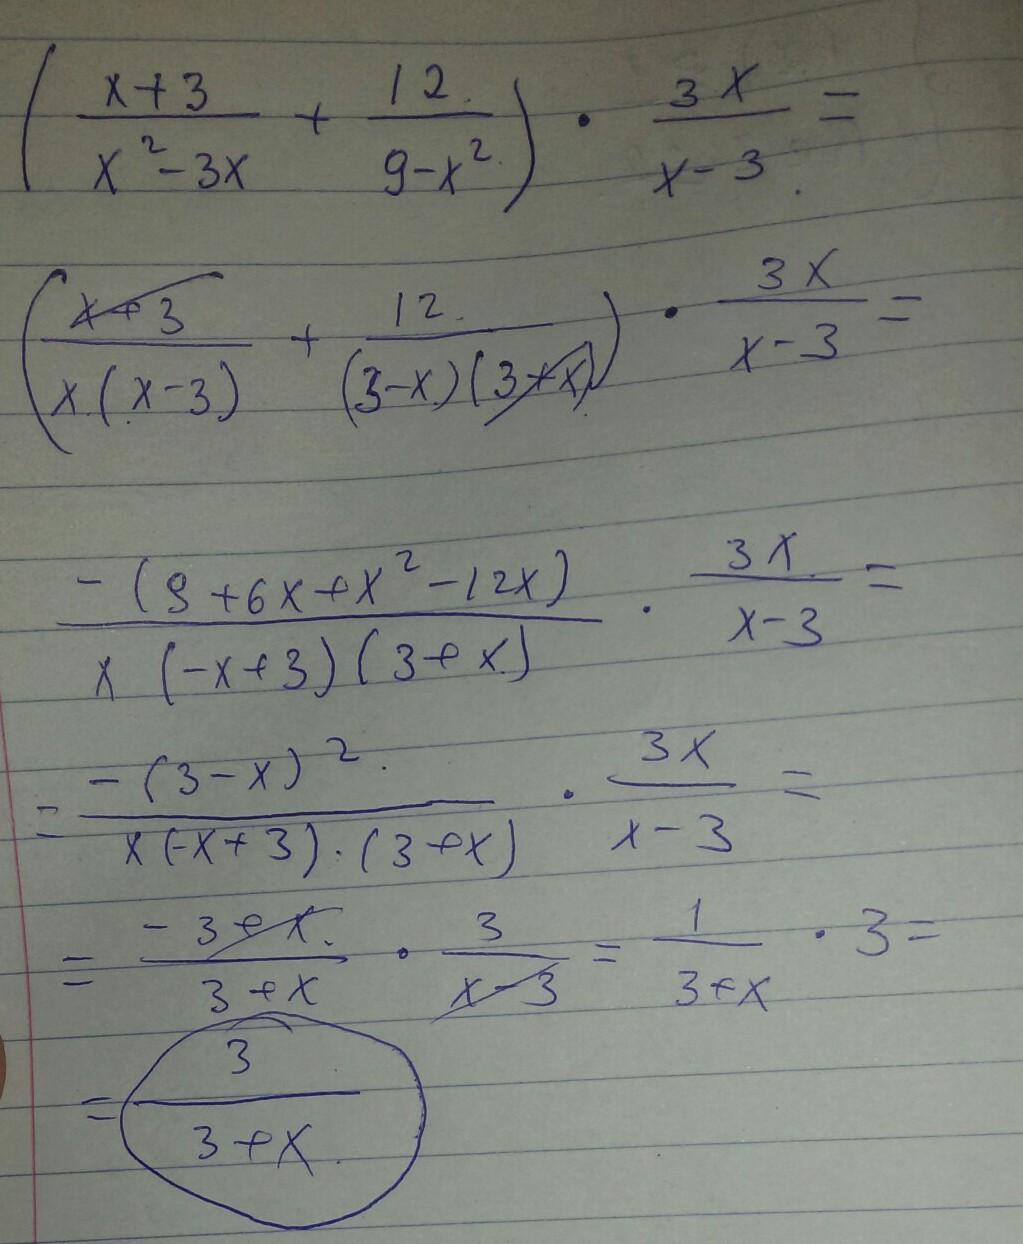 ( (x+3)/(x²-3x) + 12/(9-x²) ) · 3x/(x-3) =
( (x+3)/(x(x-3)) + 12/((3-x)(3+x)) ) · 3x/(x-3) =
-(9+6x+x²-12x)/(x(-x+3)(3+x)) · 3x/(x-3) =
= -(3-x)²/(x(-x+3)·(3+x)) · 3x/(x-3) =
= (-3+x)/(3+x) · 3/(x-3) = 1/(3+x) · 3 =
= 3/(3+x)